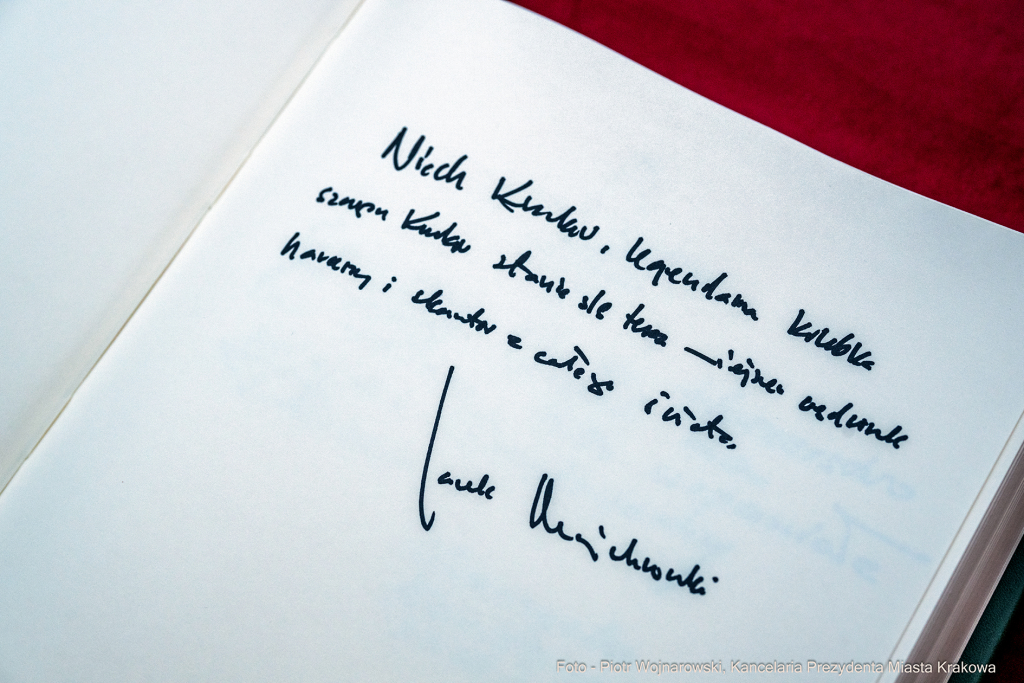 Niech Kraków, legendarna kolebka
szczepu Kraków stanie się teraz miejscem wędrówek
harcerzy i skautów z całego świata.
Jacek Majchrowski
Foto - Piotr Wojnarowski, Kancelaria Prezydenta Miasta Krakowa